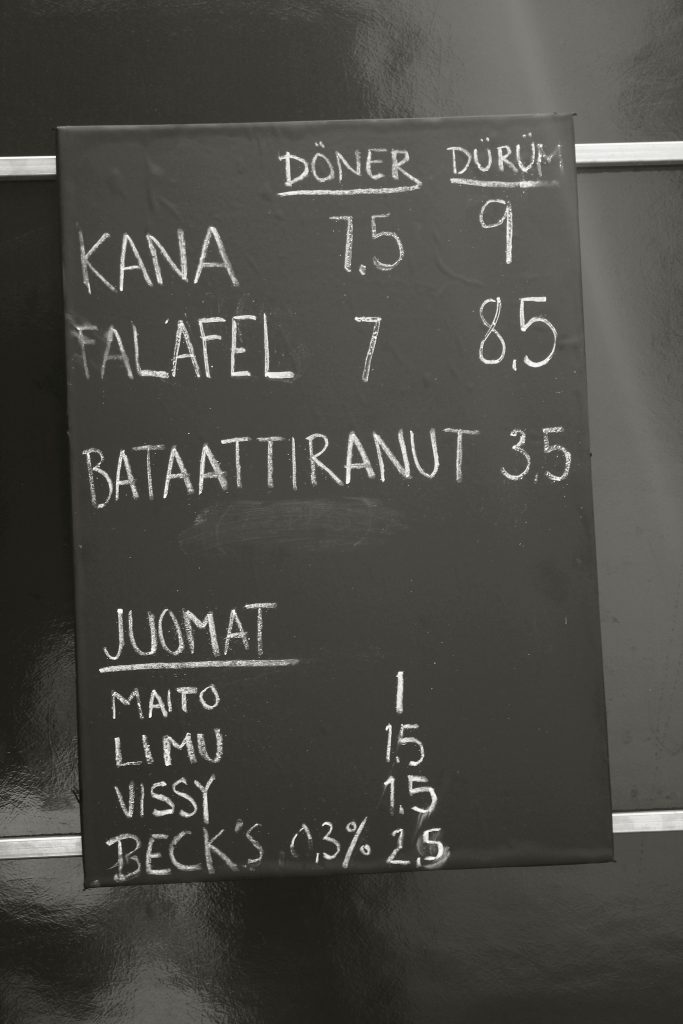 DÖNER DÜRÜM
KANA 7.5 9
FALAFEL 7 8.5
BATAATTIRANUT 3.5
JUOMAT
MAITO 1
LIMU 1.5
VISSY 1.5
BECK'S 0,3% 2.5